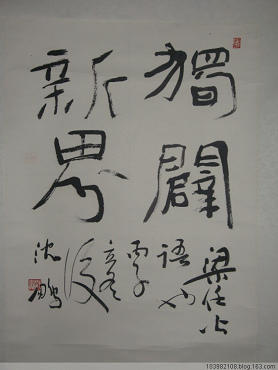 獨闢
新界
梁任公
語也
丙子
立冬
後
沈鵬
183982108.blog.163.com